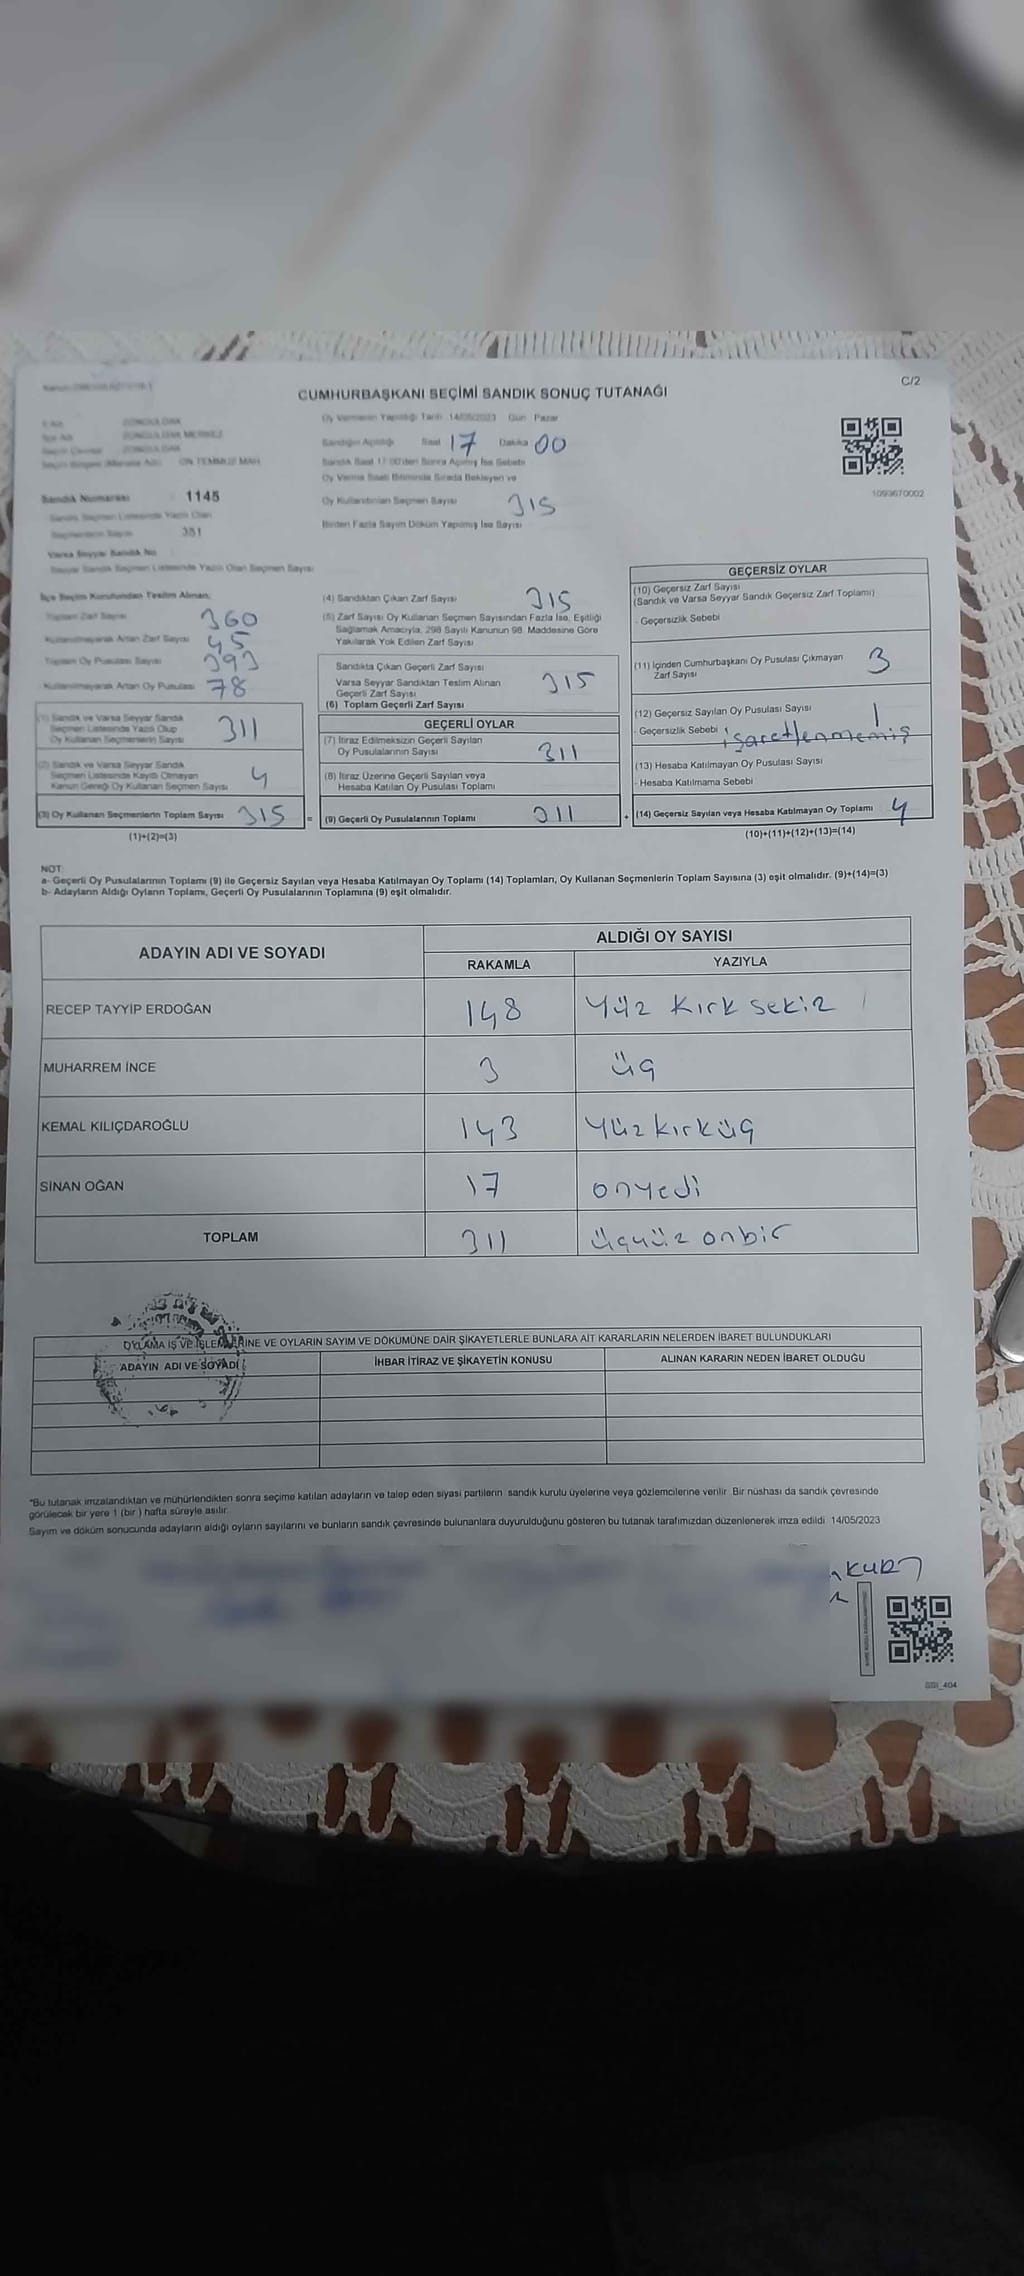 C/2
CUMHURBAŞKANI SEÇİMİ SANDIK SONUÇ TUTANAĞI
İl Adı ZONGULDAK
İlçe Adı ZONGULDAK MERKEZ
Seçim Çevresi ZONGULDAK
ON TEMMUZ MAH.
Sandık Numarası 1145
Sandık Seçmen Listesinde Yazılı Olan
Seçmenlerin Sayısı 351
Varsa Seyyar Sandık No
Seyyar Sandık Seçmen Listesinde Yazılı Olan Seçmen Sayısı
Oy Vermenin Yapıldığı Tarih 14/05/2023 Gün Pazar
Sandığın Açıldığı Saat 17 Dakika 00
Sandık Saat 17:00'den Sonra Açılmış İse Sebebi
Oy Verme Saati Bitiminde Sırada Bekleyen ve
Oy Kullandırılan Seçmen Sayısı 315
Birden Fazla Sayım Döküm Yapılmış İse Sayısı
1093670002
İlçe Seçim Kurulundan Teslim Alınan;
Toplam Zarf Sayısı 360
Kullanılmayarak Artan Zarf Sayısı 45
Toplam Oy Pusulası Sayısı 393
Kullanılmayarak Artan Oy Pusulası 78
(1) Sandık ve Varsa Seyyar Sandık
Seçmen Listesinde Yazılı Olup
Oy Kullanan Seçmenlerin Sayısı 311
(2) Sandık ve Varsa Seyyar Sandık
Seçmen Listesinde Kayıtlı Olmayan
Kanun Gereği Oy Kullanan Seçmen Sayısı 4
(3) Oy Kullanan Seçmenlerin Toplam Sayısı 315 =
(1)+(2)=(3)
(4) Sandıktan Çıkan Zarf Sayısı 315
(5) Zarf Sayısı Oy Kullanan Seçmen Sayısından Fazla İse, Eşitliği
Sağlamak Amacıyla, 298 Sayılı Kanunun 98. Maddesine Göre
Yakılarak Yok Edilen Zarf Sayısı
Sandıkta Çıkan Geçerli Zarf Sayısı
Varsa Seyyar Sandıktan Teslim Alınan
Geçerli Zarf Sayısı 315
(6) Toplam Geçerli Zarf Sayısı
GEÇERLİ OYLAR
(7) İtiraz Edilmeksizin Geçerli Sayılan
Oy Pusulalarının Sayısı 311
(8) İtiraz Üzerine Geçerli Sayılan veya
Hesaba Katılan Oy Pusulası Toplamı
(9) Geçerli Oy Pusulalarının Toplamı 311 +
GEÇERSİZ OYLAR
(10) Geçersiz Zarf Sayısı
(Sandık ve Varsa Seyyar Sandık Geçersiz Zarf Toplamı)
- Geçersizlik Sebebi
(11) İçinden Cumhurbaşkanı Oy Pusulası Çıkmayan
Zarf Sayısı 3
(12) Geçersiz Sayılan Oy Pusulası Sayısı 1
- Geçersizlik Sebebi işaretlenmemiş
(13) Hesaba Katılmayan Oy Pusulası Sayısı
- Hesaba Katılmama Sebebi
(14) Geçersiz Sayılan veya Hesaba Katılmayan Oy Toplamı 4
(10)+(11)+(12)+(13)=(14)
NOT:
a- Geçerli Oy Pusulalarının Toplamı (9) ile Geçersiz Sayılan veya Hesaba Katılmayan Oy Toplamı (14) Toplamları, Oy Kullanan Seçmenlerin Toplam Sayısına (3) eşit olmalıdır. (9)+(14)=(3)
b- Adayların Aldığı Oyların Toplamı, Geçerli Oy Pusulalarının Toplamına (9) eşit olmalıdır.
ADAYIN ADI VE SOYADI ALDIĞI OY SAYISI
RAKAMLA YAZIYLA
RECEP TAYYİP ERDOĞAN 148 Yüz kırk sekiz
MUHARREM İNCE 3 üç
KEMAL KILIÇDAROĞLU 143 Yüz kırküç
SİNAN OĞAN 17 onyedi
TOPLAM 311 üçyüz onbir
OYLAMA İŞ VE İŞLEMLERİNE VE OYLARIN SAYIM VE DÖKÜMÜNE DAİR ŞİKAYETLERLE BUNLARA AİT KARARLARIN NELERDEN İBARET BULUNDUKLARI
ADAYIN ADI VE SOYADI İHBAR İTİRAZ VE ŞİKAYETİN KONUSU ALINAN KARARIN NEDEN İBARET OLDUĞU
*Bu tutanak imzalandıktan ve mühürlendikten sonra seçime katılan adayların ve talep eden siyasi partilerin sandık kurulu üyelerine veya gözlemcilerine verilir. Bir nüshası da sandık çevresinde
görülecek bir yere 1 (bir) hafta süreyle asılır.
Sayım ve döküm sonucunda adayların aldığı oyların sayılarını ve bunların sandık çevresinde bulunanlara duyurulduğunu gösteren bu tutanak tarafımızdan düzenlenerek imza edildi 14/05/2023
KURT